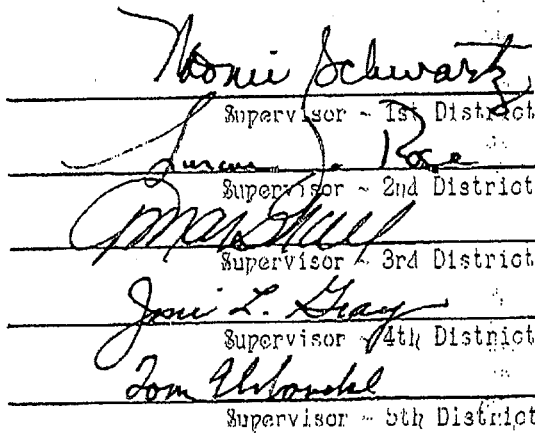 Naomi Schwartz
Supervisor - 1st District
Susan J. Rose
Supervisor - 2nd District
Marshall
Supervisor - 3rd District
Joni L. Gray
Supervisor - 4th District
Tom Urbanske
Supervisor - 5th District